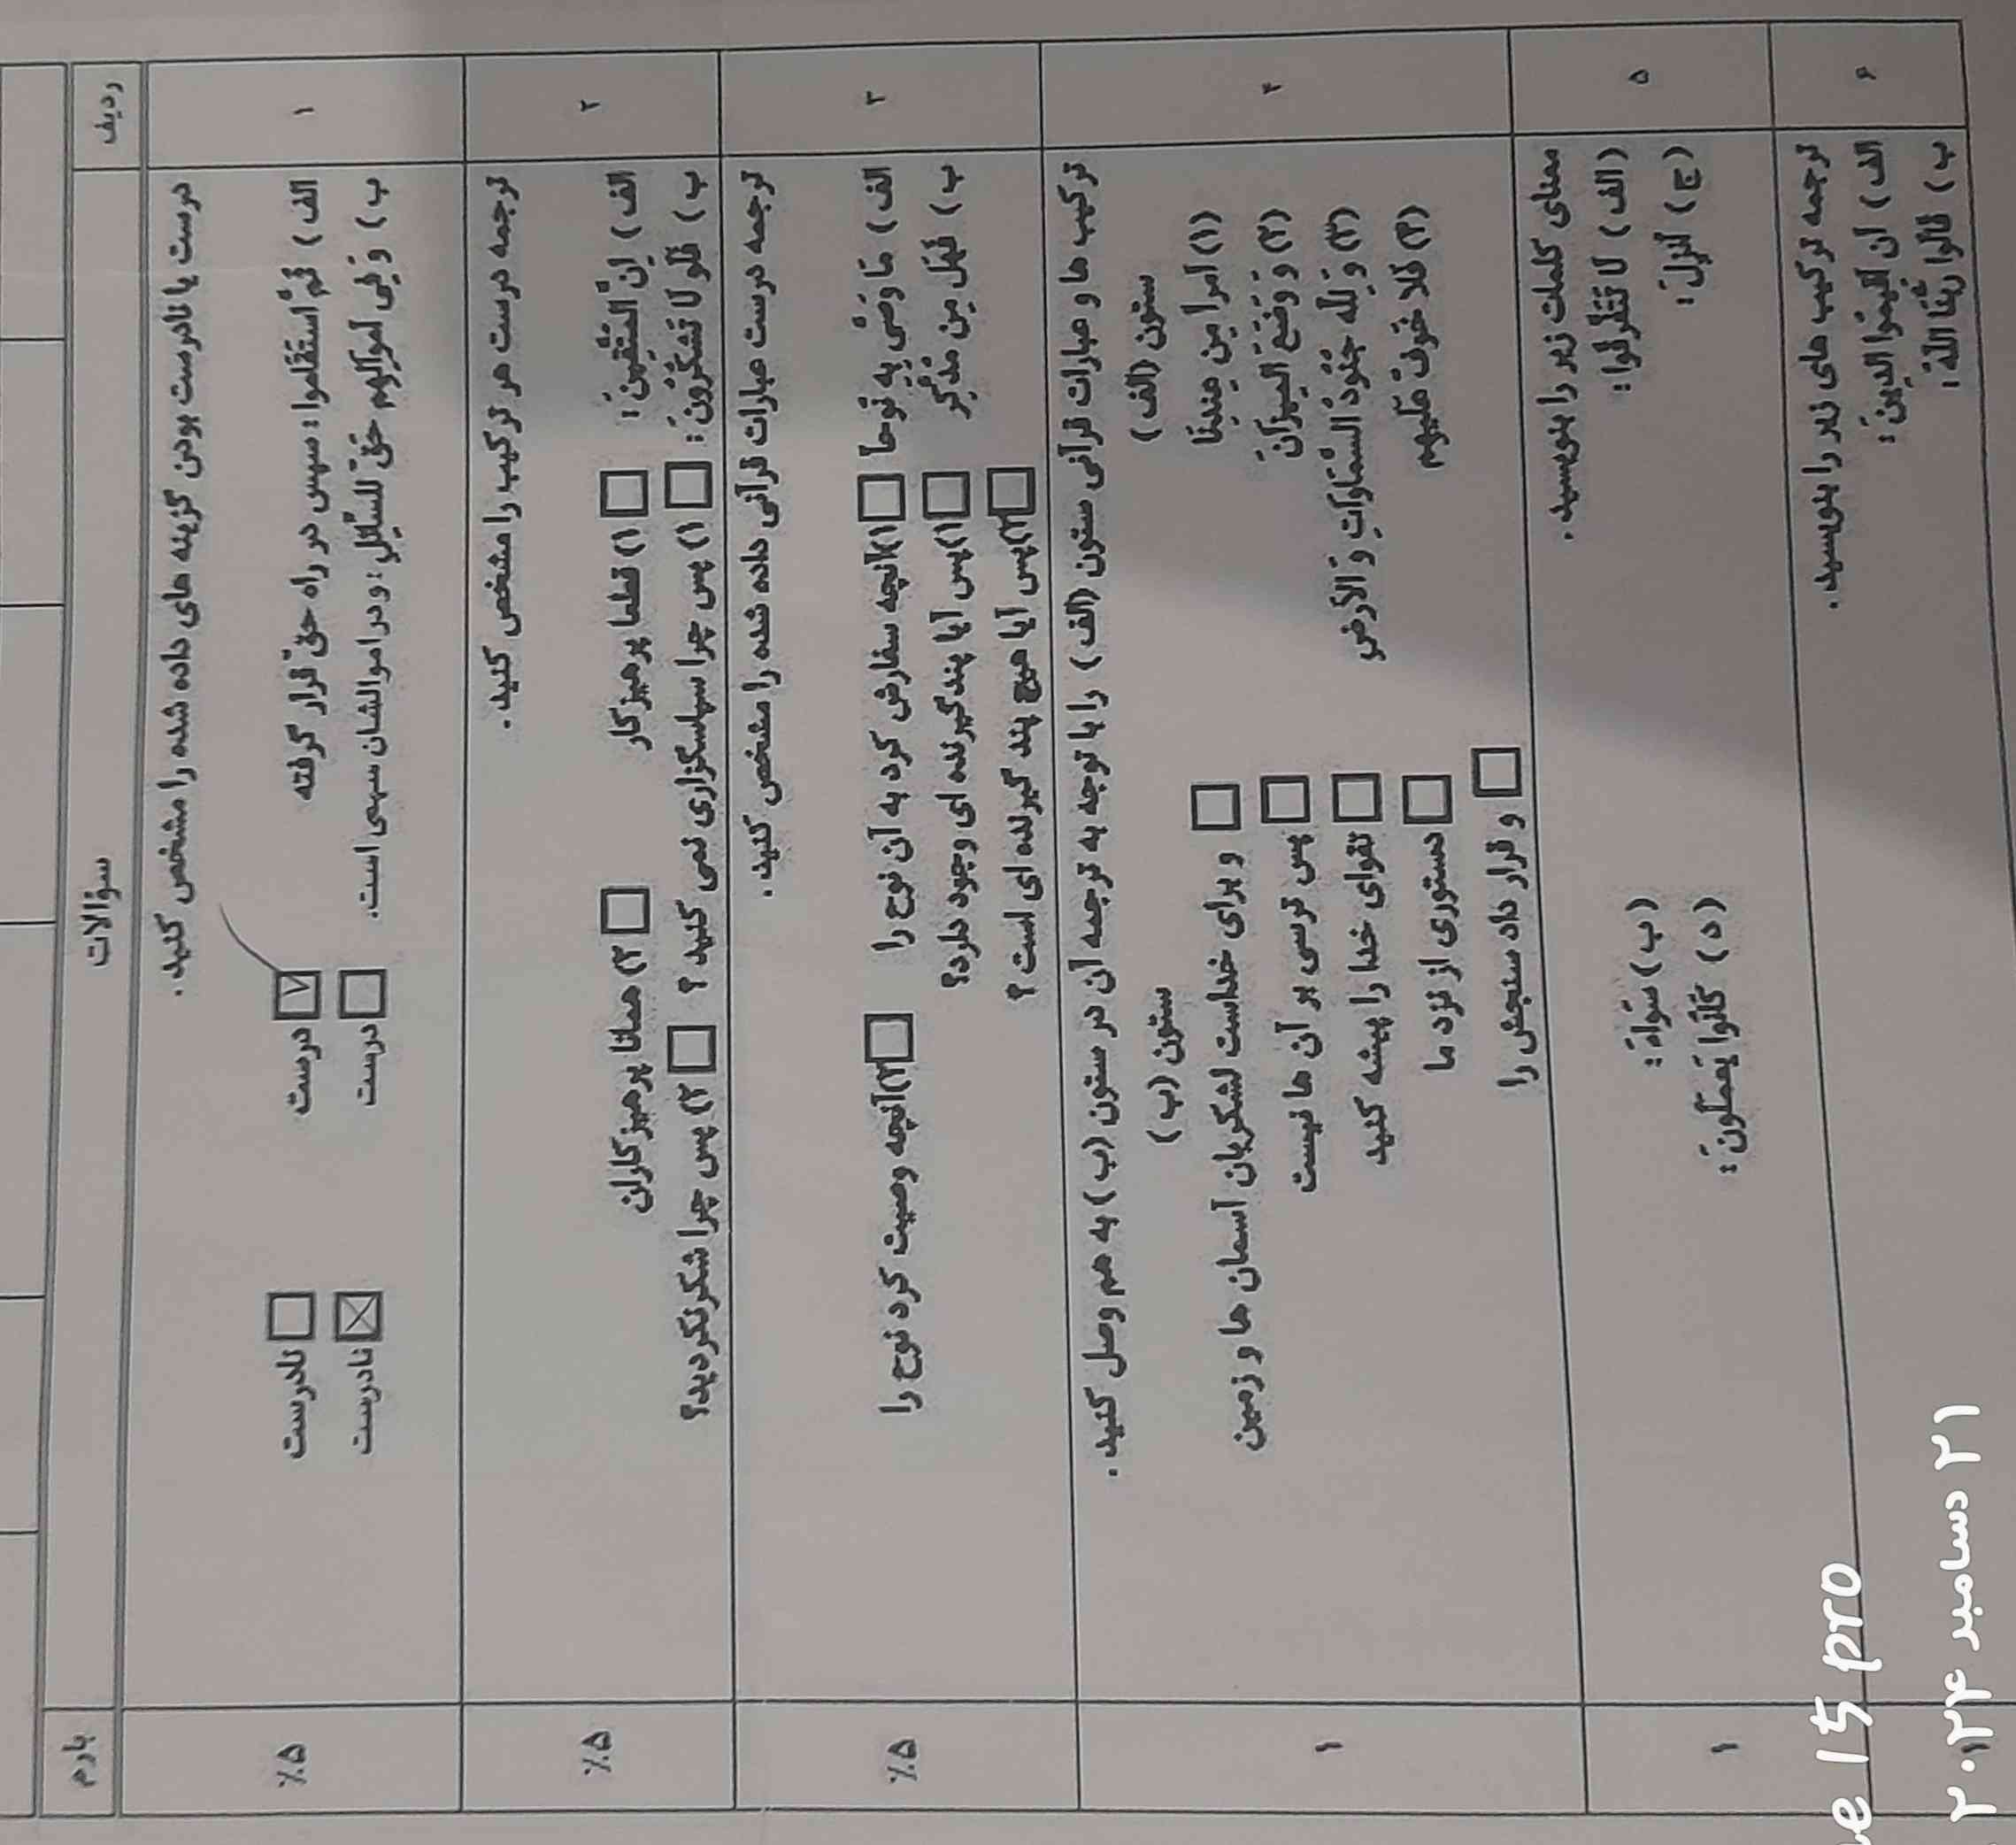 ردیف سؤالات بارم
۱ درست یا نادرست بودن گزینه های داده شده را مشخص کنید. ۵٪
الف) ثُمَّ استَقاموا: سپس در راه حقّ قرار گرفته درست نادرست
ب) وَ فی اَموالِهِم حَقٌّ لِلسّائِلِ: و در اموالشان سهمی است. درست نادرست
۲ ترجمه درست هر ترکیب را مشخص کنید. ۵٪
الف) اِنَّ المُتَّقینَ: ۱) قطعا پرهیزکار ۲) همانا پرهیزکاران
ب) فَلَولا تَشکُرونَ: ۱) پس چرا سپاسگزاری نمی کنید؟ ۲) پس چرا شکر نکردید؟
۳ ترجمه درست عبارات قرآنی داده شده را مشخص کنید. ۵٪
الف) ما وَصّی بِه نوحاً ۱)آنچه سفارش کرد به آن نوح را ۲)آنچه وصیت کرد نوح را
ب) فَهَل مِن مُدَّکِر ۱)پس آیا پندگیرنده ای وجود دارد؟
۲)پس آیا هیچ پند گیرنده ای است؟
۴ ترکیب ها و عبارات قرآنی ستون (الف) را با توجه به ترجمه آن در ستون (ب) به هم وصل کنید. ۱
ستون (الف) ستون (ب)
(۱) اَمراً مِن عِندِنا و برای خداست لشکریان آسمان ها و زمین
(۲) وَ وَضَعَ المیزانَ پس ترسی بر آن ها نیست
(۳) وَ لِلّهِ جُنودُ السَّماواتِ وَ الاَرضِ تقوای خدا را پیشه کنید
(۴) فَلا خَوفٌ عَلَیهِم دستوری از نزد ما
و قرار داد سنجش را
۵ معنای کلمات زیر را بنویسید. ۱
(الف) لا تَتَفَرَّقوا: (ب) سَواءَ:
(ج) اَنزَلَ: (د) کانوا یَعمَلونَ:
۶ ترجمه ترکیب های زیر را بنویسید.
الف) اَن اَقیموا الدّینَ:
ب) قالوا رَبُّنَا اللّهُ:
e 15 pro
۲۱ دسامبر ۲۰۲۴